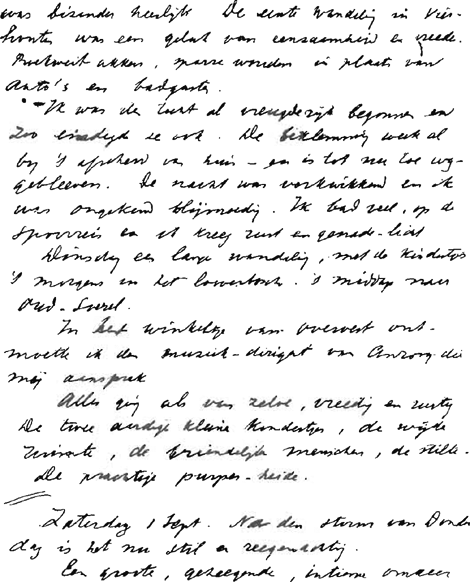 was bizonder heerlijk. De eerste wandeling in Vier-
houten was een geluk van eenzaamheid en vrede.
Boekweit akkers, warme wouden in plaats van
Auto's en badgasten.
Ik was den tocht al vreugdezijk begonnen en
zoo eindigde ze ook. De beklemming week al
bij 't afscheid van huis – en is tot nu toe weg-
gebleeven. De nacht was verkwikkend en ik
was ongekend blijmoedig. Ik bad veel, op de
spoorreis en ik kreeg rust en genade-licht
Dinsdag een lange wandeling, met de kindertjes
's morgens in het loverbosch. 's middags naar
Oud-Soerel.
In het winkeltje van overwest ont-
moette ik den muziek-dirigent van die
mij aansprak
Alles ging als van zelve, vreedig en rustig
De twee aardige kleine hondertjes, de wijde
ruimte, de vriendelijke menschen, de stilte.
De prachtige purper-heide.
Zaterdag 1 Sept. Na den storm van Donder
dag is het nu stil en reegenachtig.
Een groote, geheegende, intieme